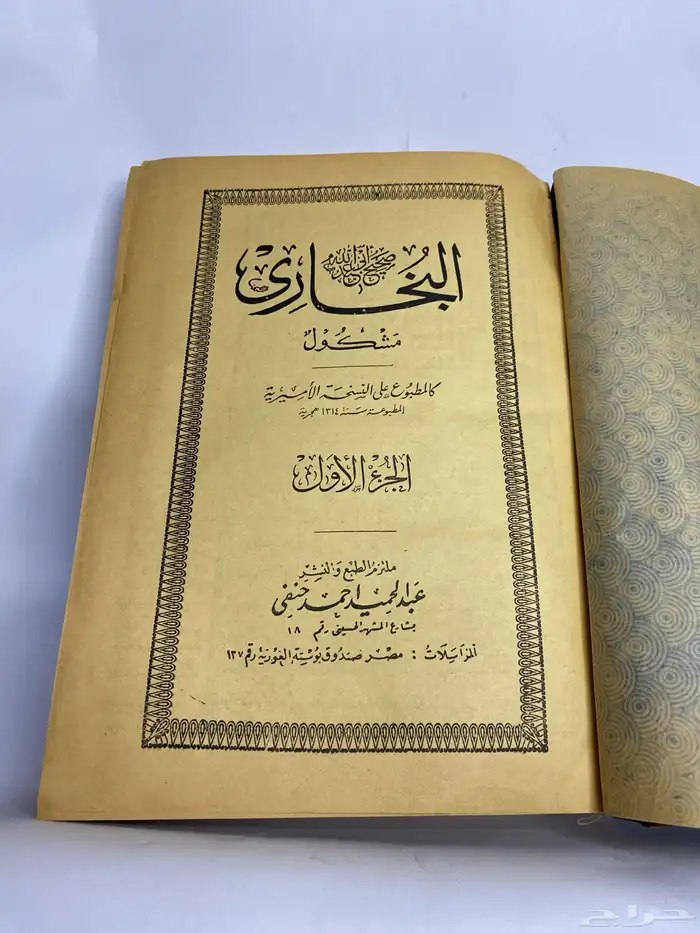 صحيح أبي عبد الله
البُخَارِي
مَشْكُولٌ
كالمطبوع على النسخة الأميرية
المطبوعة سنة ١٣١٤ هجرية
الجزء الأول
ملتزم الطبع والنشر
عبد الحميد احمد حنفى
بشارع المشهد الحسينى رقم ١٨
المراسلات : مصر صندوق بوستة الغورية رقم ١٣٧
حراج